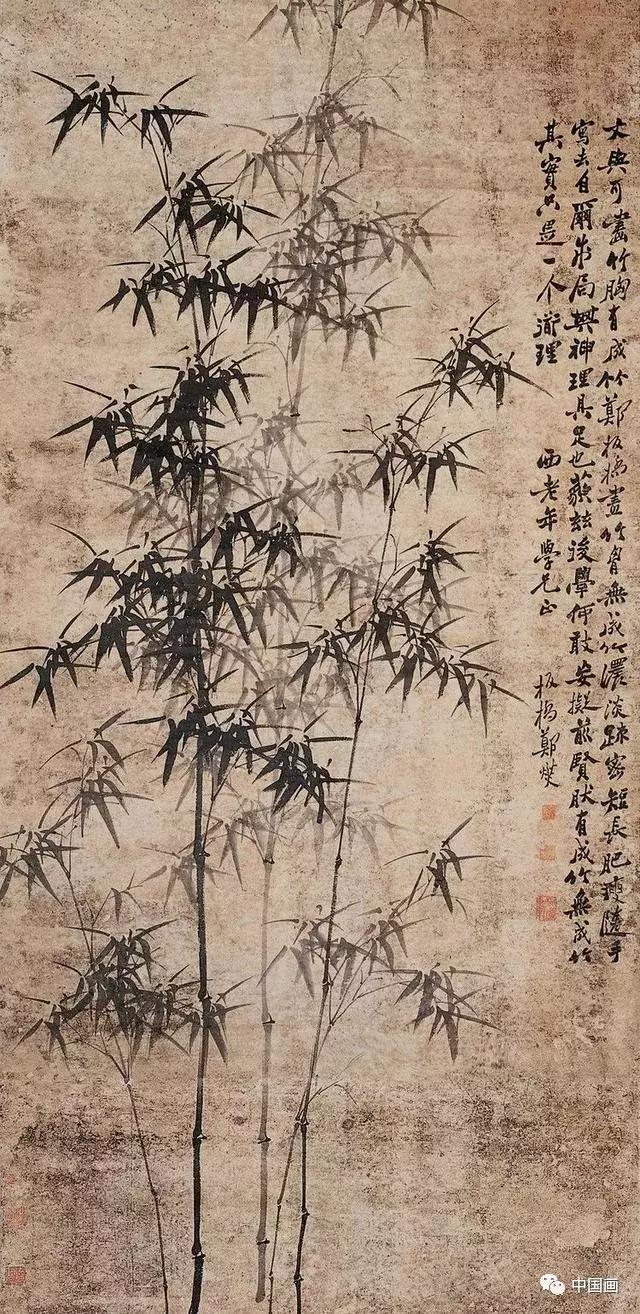 文與可畫竹胸有成竹鄭板橋畫竹胷無成竹濃淡疎密短長肥瘦隨手
寫去自爾成局其神理具足也藐茲後學何敢妄擬前賢肰有成竹無成竹
其實只是一个道理
酉老年學兄正
板橋鄭燮
中国画